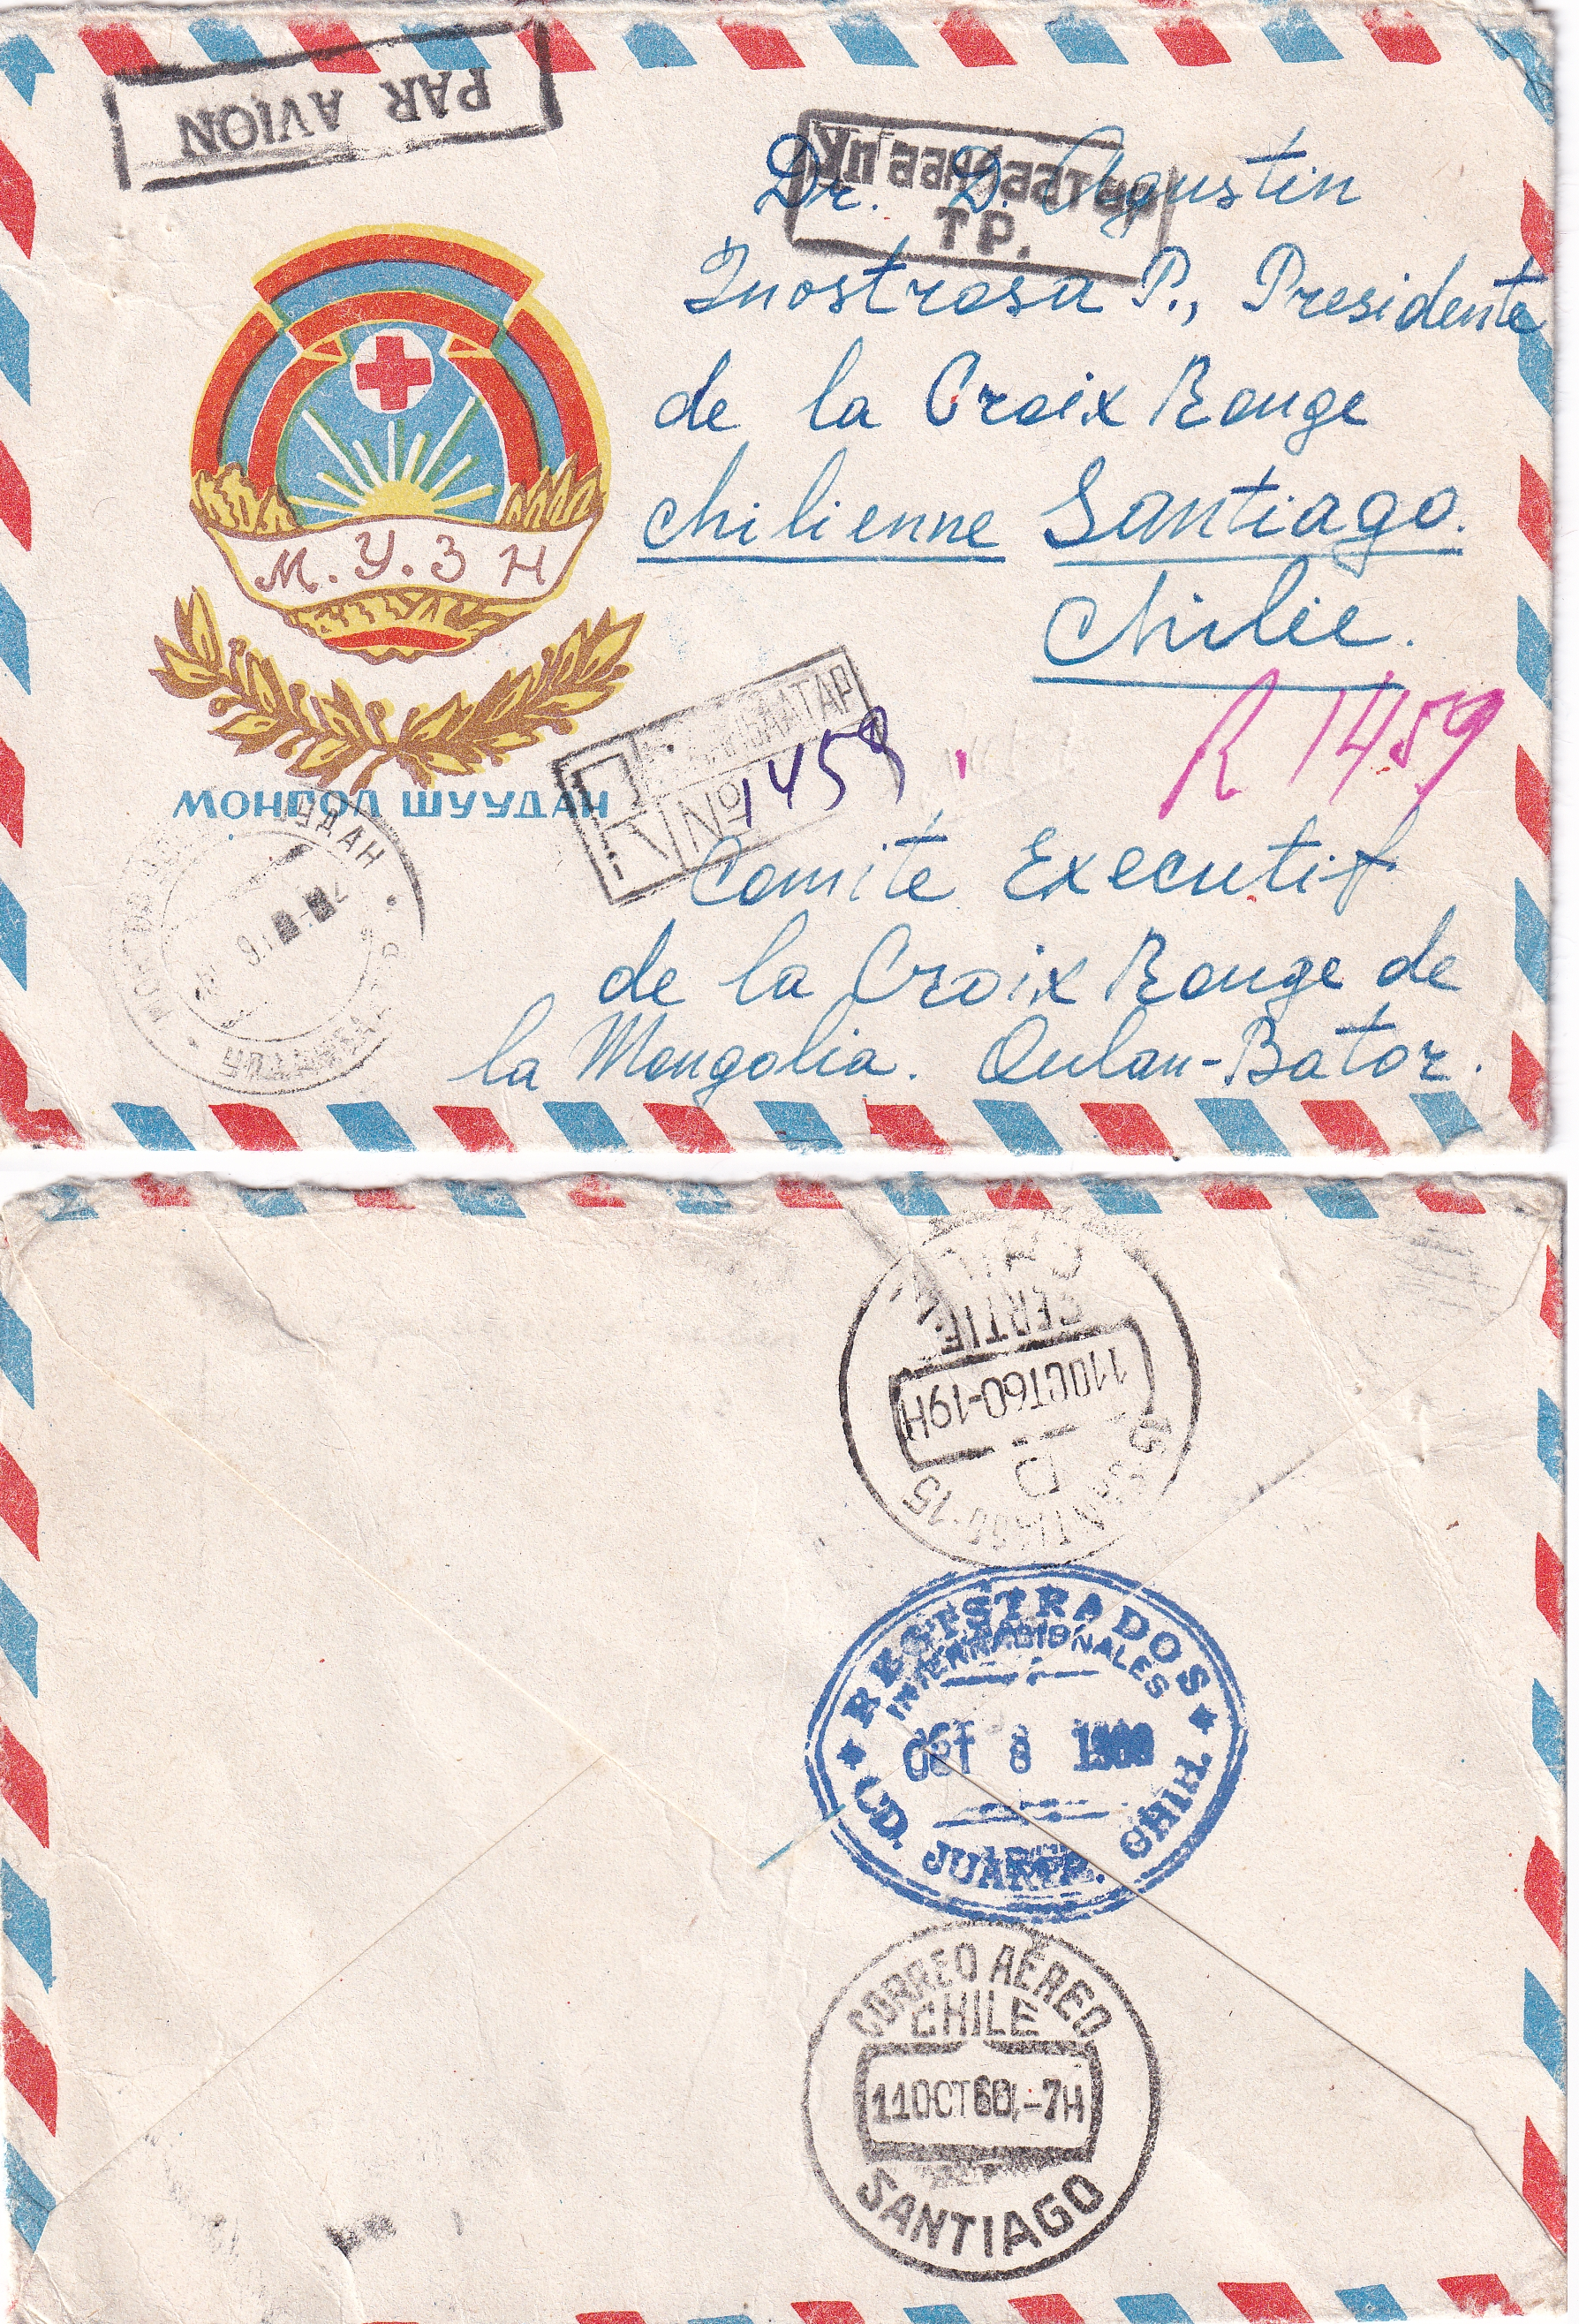 PAR AVION
Улаанбаатар
ТР.
Dr. D. Agustin
Inostrosa P., Presidente
de la Croix Rouge
chilienne Santiago.
Chilie.
М.У.З Н
R 1459
МОНГОЛ ШУУДАН
R
№ 1459
Comite Executif
de la Croix Rouge de
la Mongolia. Oulan-Bator.
CHILE
CERTIF.
11OCT60-19H
D
SANTIAGO-15
REGISTRADOS
INTERNACIONALES
OCT 8 1960
CD. JUAREZ. CHIH
CORREO AEREO
CHILE
11OCT60.-7H
SANTIAGO